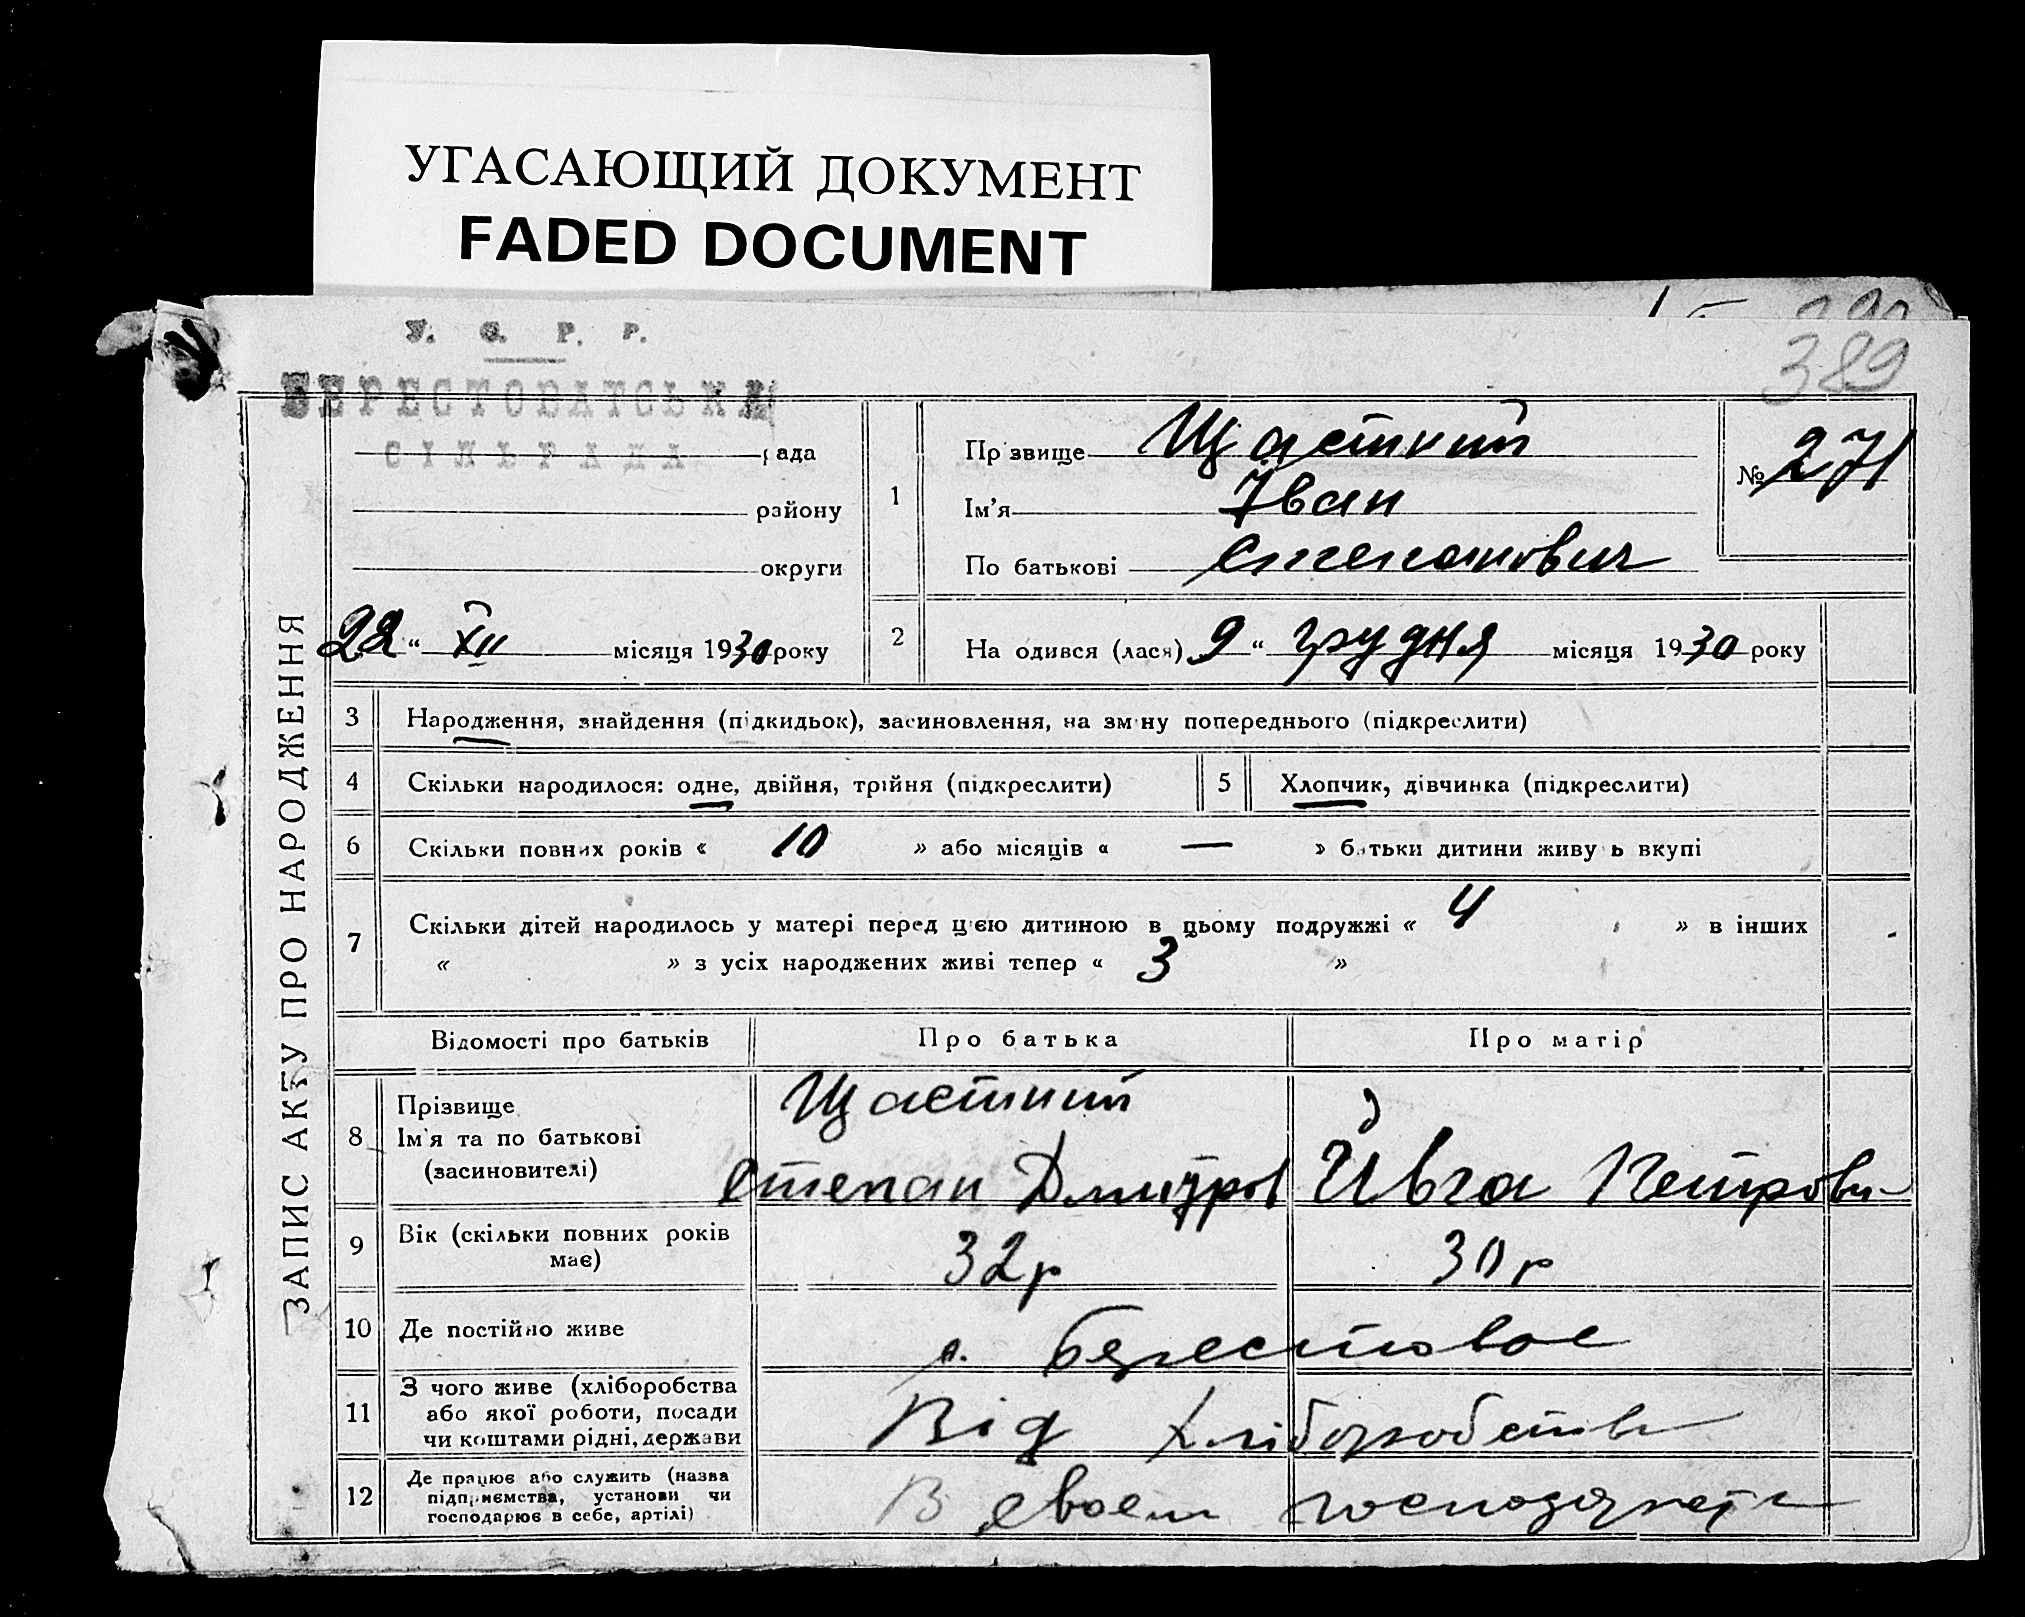 УГАСАЮЩИЙ ДОКУМЕНТ
FADED DOCUMENT
389
У. С. Р. Р.
БЕРЕСТОВАТСЬКА
СІЛЬРАДА рада
району
округи
22 " XII місяця 1930 року
ЗАПИС АКТУ ПРО НАРОДЖЕННЯ
1 Прізвище Щастний
Ім'я Іван
По батькові Степанович
№ 271
2 На одився (лася) 9 " грудня місяця 1930 року
3 Народження, знайдення (підкидьок), засиновлення, на зміну попереднього (підкреслити)
4 Скільки народилося: одне, двійня, трійня (підкреслити) 5 Хлопчик, дівчинка (підкреслити)
6 Скільки повних років « 10 » або місяців « — » батьки дитини живу ь вкупі
7 Скільки дітей народилось у матері перед цією дитиною в цьому подружжі « 4 » в інших
« » з усіх народжених живі тепер « 3 »
Відомості про батьків Про батька Про матір
8 Прізвище
Ім'я та по батькові
(засиновителі)
Щастний
Степан Дмитров Ивга Петровн
9 Вік (скільки повних років
має)
32 р 30 р
10 Де постійно живе с. Берестовое
11 З чого живе (хліборобства
або якої роботи, посади
чи коштами рідні, держави
Від хліборобства
12 Де працює або служить (назва
підприємства, установи чи
господарює в себе, артілі)
В своем